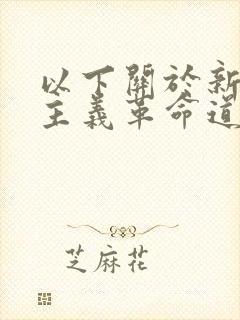 以下關於新
主義革命道
芝麻花